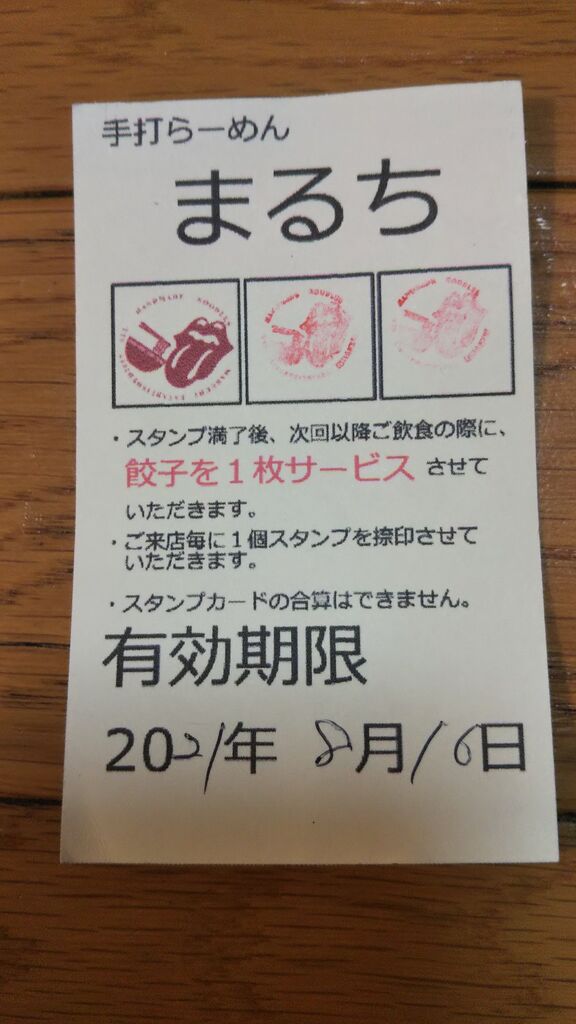 手打らーめん
まるち
HANDMADE NOODLES
・スタンプ満了後、次回以降ご飲食の際に、
餃子を１枚サービス させて
いただきます。
・ご来店毎に１個スタンプを捺印させて
いただきます。
・スタンプカードの合算はできません。
有効期限
2021年 8月16日